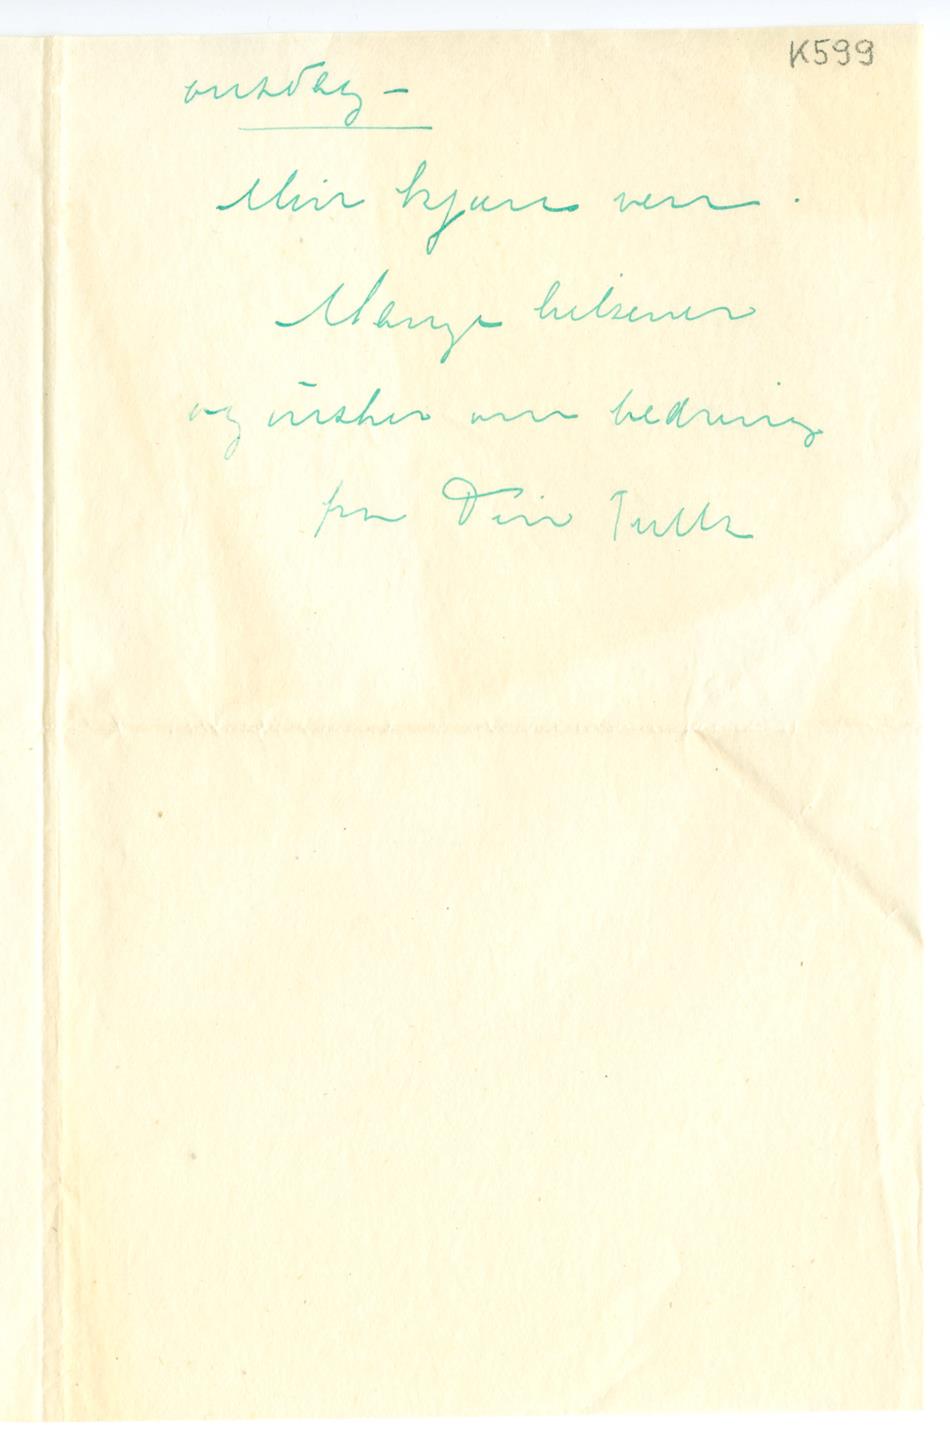 K599
onsdag –
Min kjære venn.
Mange hilsener
og ønsker om bedring
fra Din Tulla